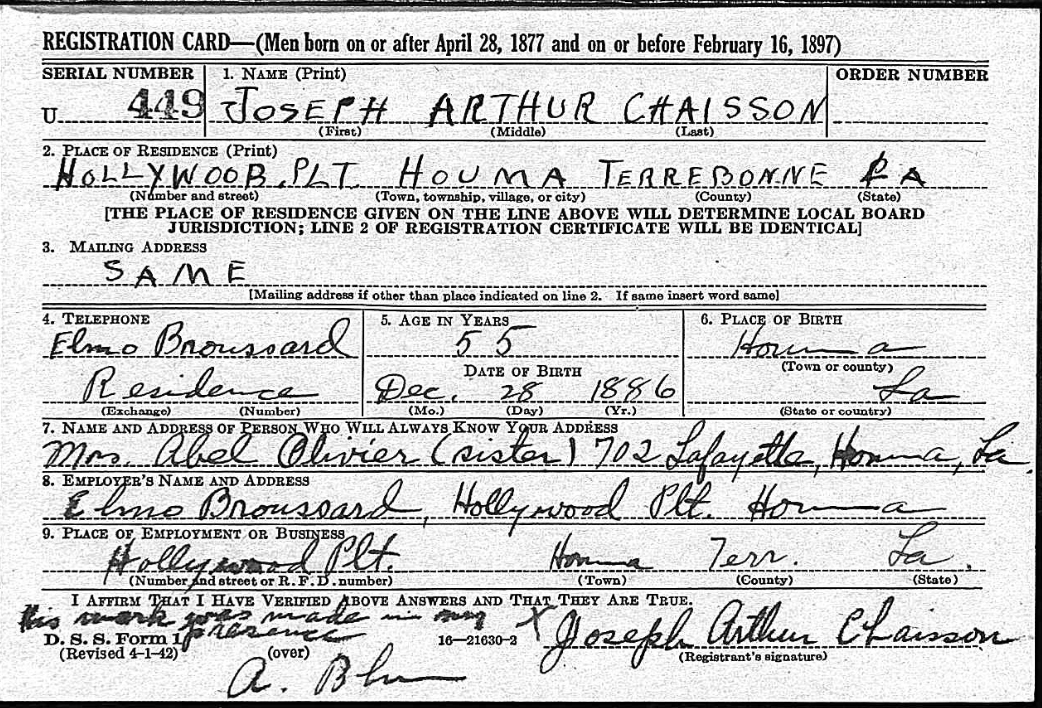 REGISTRATION CARD—(Men born on or after April 28, 1877 and on or before February 16, 1897)
SERIAL NUMBER 1. NAME (Print) ORDER NUMBER
U 449 JOSEPH ARTHUR CHAISSON
(First) (Middle) (Last)
2. PLACE OF RESIDENCE (Print)
HOLLYWOOB. PLT. HOUMA TERREBONNE LA
(Number and street) (Town, township, village, or city) (County) (State)
[THE PLACE OF RESIDENCE GIVEN ON THE LINE ABOVE WILL DETERMINE LOCAL BOARD
JURISDICTION; LINE 2 OF REGISTRATION CERTIFICATE WILL BE IDENTICAL]
3. MAILING ADDRESS
SAME
[Mailing address if other than place indicated on line 2. If same insert word same]
4. TELEPHONE 5. AGE IN YEARS 6. PLACE OF BIRTH
Elmo Broussard 55 Houma
(Town or county)
DATE OF BIRTH
Residence Dec. 28 1886 La
(Exchange) (Number) (Mo.) (Day) (Yr.) (State or country)
7. NAME AND ADDRESS OF PERSON WHO WILL ALWAYS KNOW YOUR ADDRESS
Mrs. Abel Olivier (sister) 702 Lafayette, Houma, La.
8. EMPLOYER'S NAME AND ADDRESS
Elmo Broussard, Hollywood Plt. Houma
9. PLACE OF EMPLOYMENT OR BUSINESS
Hollywood Plt. Houma Terr. La.
(Number and street or R. F. D. number) (Town) (County) (State)
I AFFIRM THAT I HAVE VERIFIED ABOVE ANSWERS AND THAT THEY ARE TRUE.
His mark was made in my
presence
D. S. S. Form 1 16—21630-2 X Joseph Arthur Chaisson
(Revised 4-1-42) (over) (Registrant's signature)
A. Blum